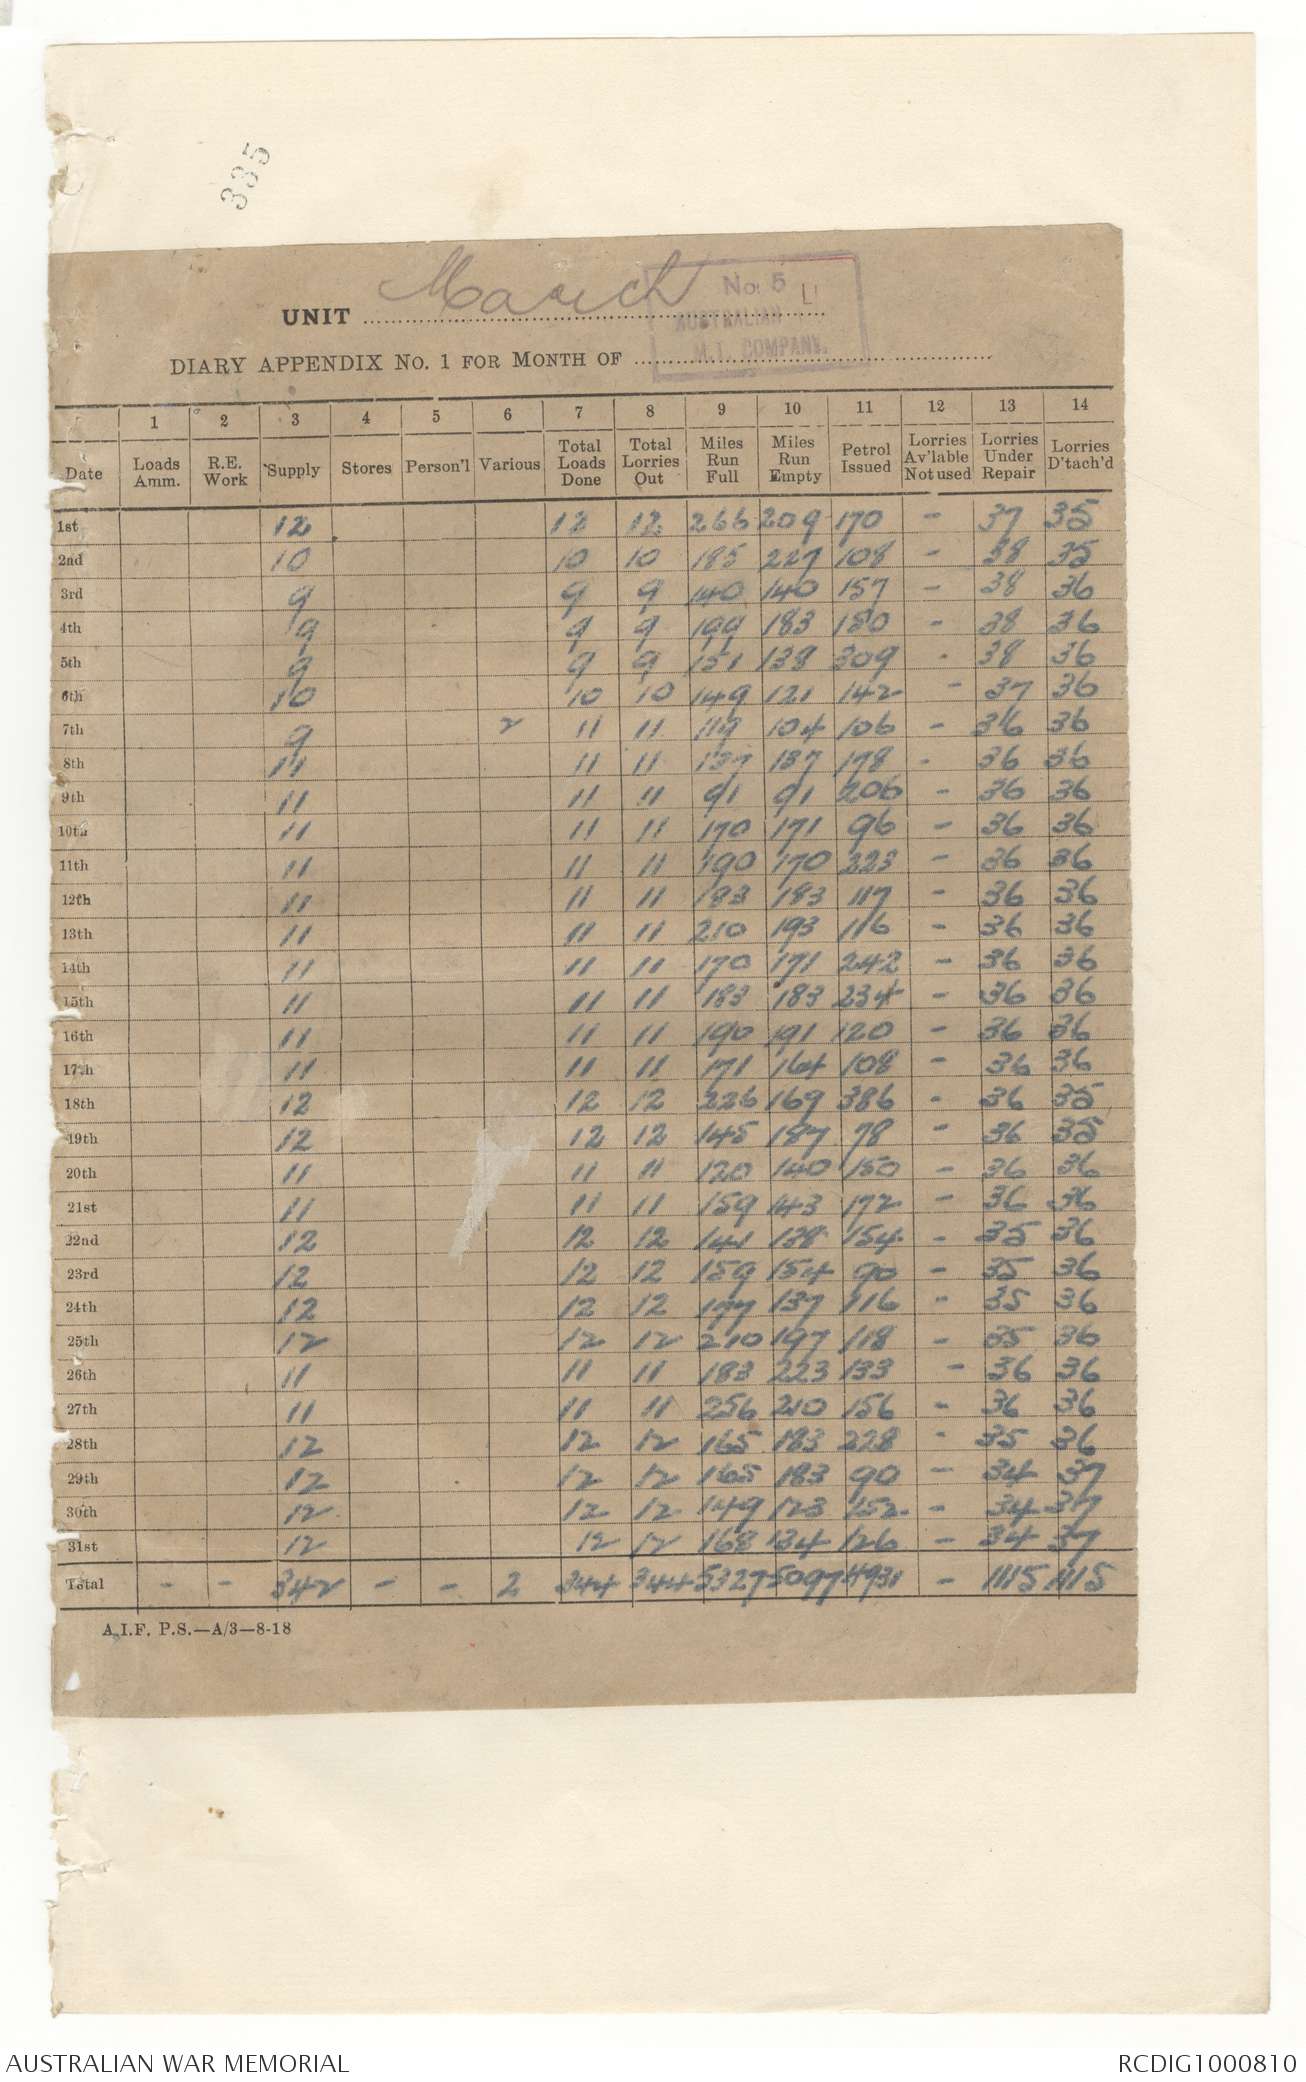 335
UNIT March
No. 5
AUSTRALIAN
M.T. COMPANY.
DIARY APPENDIX No. 1 FOR MONTH OF
1 2 3 4 5 6 7 8 9 10 11 12 13 14
Date Loads Amm. R.E. Work Supply Stores Person'l Various Total Loads Done Total Lorries Out Miles Run Full Miles Run Empty Petrol Issued Lorries Av'lable Not used Lorries Under Repair Lorries D'tach'd
1st 12 12 12 266 209 170 - 37 35
2nd 10 10 10 185 227 108 - 38 35
3rd 9 9 9 140 140 157 - 38 36
4th 9 9 9 199 183 150 - 38 36
5th 9 9 9 151 138 309 - 38 36
6th 10 10 10 149 121 142 - 37 36
7th 9 2 11 11 119 104 106 - 36 36
8th 11 11 11 137 137 178 - 36 36
9th 11 11 11 91 91 206 - 36 36
10th 11 11 11 170 171 96 - 36 36
11th 11 11 11 190 170 223 - 36 36
12th 11 11 11 183 183 117 - 36 36
13th 11 11 11 210 193 116 - 36 36
14th 11 11 11 170 171 242 - 36 36
15th 11 11 11 183 183 234 - 36 36
16th 11 11 11 190 191 120 - 36 36
17th 11 11 11 171 164 108 - 36 36
18th 12 12 12 226 169 386 - 36 35
19th 12 12 12 145 187 78 - 36 35
20th 11 11 11 120 140 150 - 36 36
21st 11 11 11 159 143 172 - 36 36
22nd 12 12 12 141 138 154 - 35 36
23rd 12 12 12 159 154 90 - 35 36
24th 12 12 12 177 137 116 - 35 36
25th 12 12 12 210 197 118 - 35 36
26th 11 11 11 183 223 133 - 36 36
27th 11 11 11 256 210 156 - 36 36
28th 12 12 12 165 183 228 - 35 36
29th 12 12 12 165 183 90 - 34 37
30th 12 12 12 149 123 152 - 34 37
31st 12 12 12 168 134 126 - 34 37
Total - - 342 - - 2 344 344 5327 5097 4931 - 1115 1115
A.I.F. P.S.—A/3—8-18
AUSTRALIAN WAR MEMORIAL RCDIG1000810